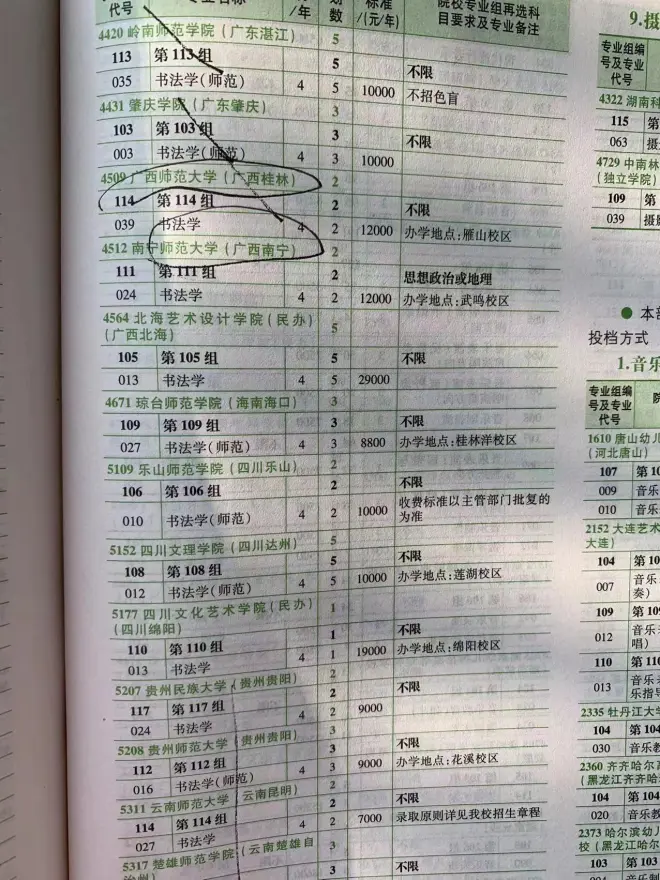 代号 专业名称 /年 划数 标准/(元/年) 院校专业组再选科目要求及专业备注
4420 岭南师范学院(广东湛江) 5
113 第113组 5 不限
035 书法学(师范) 4 5 10000 不招色盲
4431 肇庆学院(广东肇庆) 3
103 第103组 3 不限
003 书法学(师范) 4 3 10000
4509 广西师范大学(广西桂林) 2
114 第114组 2 不限
039 书法学 4 2 12000 办学地点:雁山校区
4512 南宁师范大学(广西南宁) 2
111 第111组 2 思想政治或地理
024 书法学 4 2 12000 办学地点:武鸣校区
4564 北海艺术设计学院(民办) 5
(广西北海)
105 第105组 5 不限
013 书法学 4 5 29000
4671 琼台师范学院(海南海口) 3
109 第109组 3 不限
027 书法学(师范) 4 3 8800 办学地点:桂林洋校区
5109 乐山师范学院(四川乐山) 2
106 第106组 2 不限
010 书法学(师范) 4 2 10000 收费标准以主管部门批复的为准
5152 四川文理学院(四川达州) 5
108 第108组 5 不限
012 书法学(师范) 4 5 10000 办学地点:莲湖校区
5177 四川文化艺术学院(民办) 1
(四川绵阳)
110 第110组 1 不限
013 书法学 4 1 19000 办学地点:绵阳校区
5207 贵州民族大学(贵州贵阳) 2
117 第117组 2 不限
024 书法学 4 2 9000
5208 贵州师范大学(贵州贵阳) 3
112 第112组 3 不限
016 书法学(师范) 4 3 9000 办学地点:花溪校区
5311 云南师范大学(云南昆明) 2
114 第114组 2 不限
027 书法学 4 2 7000 录取原则详见我校招生章程
5317 楚雄师范学院(云南楚雄自 3
治州) 3 不限
9.摄
专业组编号及专业代号
4322 湖南科
115 第
063 摄
4729 中南林
(独立学院)
109 第
039 摄
● 本
投档方式
1.音乐
专业组编号及专业代号 院
1610 唐山幼儿
(河北唐山)
107 第10
009 音乐
010 音乐
2152 大连艺术
大连)
104 第10
007 音乐
奏)
109 第10
012 音乐
唱)
110 第11
013 音乐
乐指
2335 牡丹江大
104 第104
030 音乐教
2360 齐齐哈尔
(黑龙江齐齐哈
104 第104
020 音乐教
2373 哈尔滨幼儿
校(黑龙江哈尔
103 第103